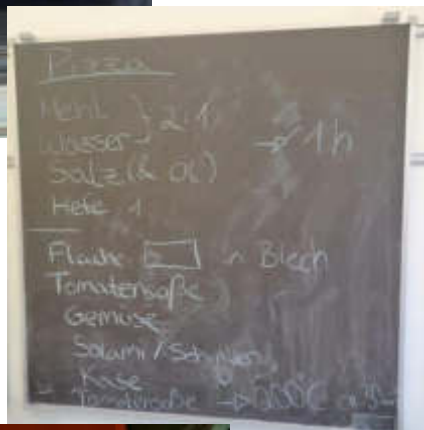 Pizza
Mehl } 2:1
Wasser → 1h
Salz (& Öl)
Hefe 1
Fläche Blech
Tomatensoße
Gemüse
Salami / Schinken
Käse
Tomatensoße → 200°C